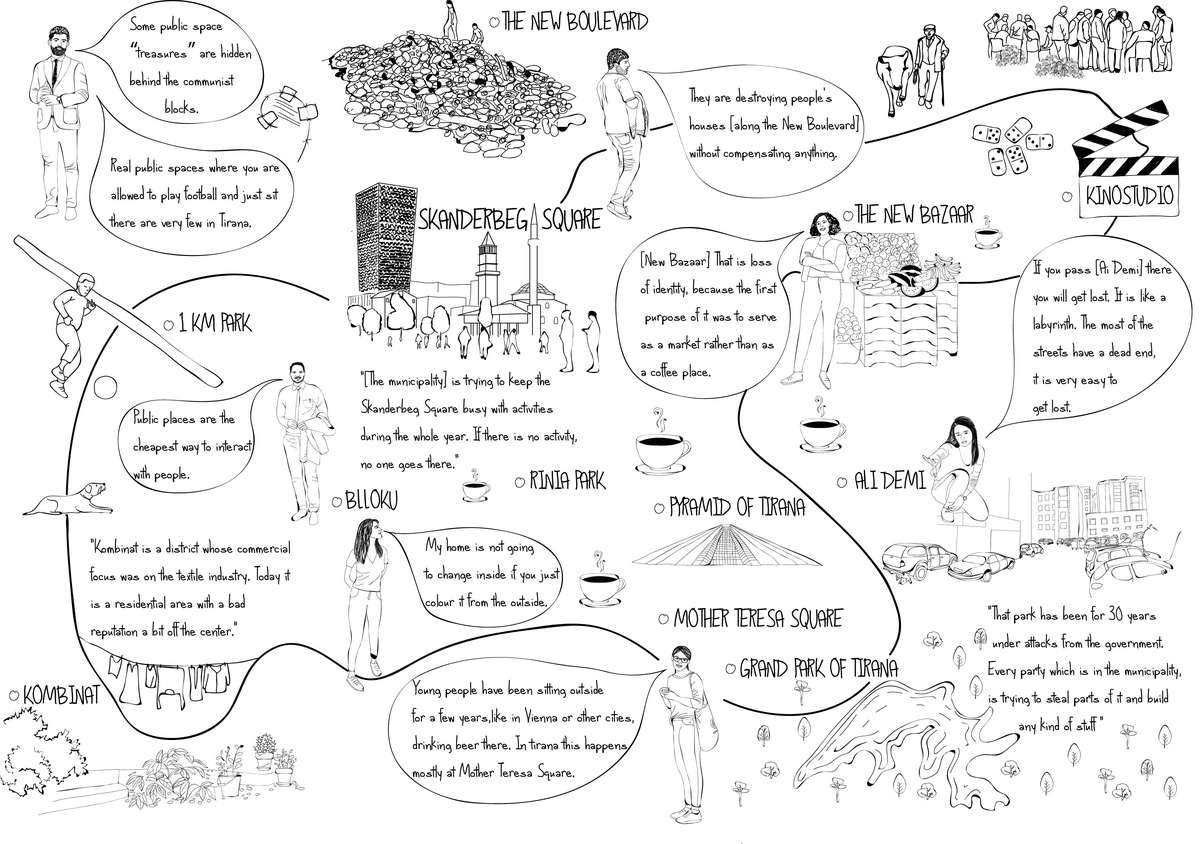 Some public space
"treasures" are hidden
behind the communist
blocks.
Real public spaces where you are
allowed to play football and just sit
there are very few in Tirana.
THE NEW BOULEVARD
They are destroying people's
houses [along the New Boulevard]
without compensating anything.
KINOSTUDIO
SKANDERBEG SQUARE
"[The municipality] is trying to keep the
Skanderbeg Square busy with activities
during the whole year. If there is no activity,
no one goes there."
THE NEW BAZAAR
[New Bazaar] That is loss
of identity, because the first
purpose of it was to serve
as a market rather than as
a coffee place.
If you pass [Ai Demi] there
you will get lost. It is like a
labyrinth. The most of the
streets have a dead end,
it is very easy to
get lost.
1 KM PARK
Public places are the
cheapest way to interact
with people.
RINIA PARK
BLLOKU
My home is not going
to change inside if you just
colour it from the outside.
PYRAMID OF TIRANA
ALI DEMI
"Kombinat is a district whose commercial
focus was on the textile industry. Today it
is a residential area with a bad
reputation a bit off the center."
KOMBINAT
MOTHER TERESA SQUARE
Young people have been sitting outside
for a few years,like in Vienna or other cities,
drinking beer there. In tirana this happens
mostly at Mother Teresa Square.
GRAND PARK OF TIRANA
"That park has been for 30 years
under attacks from the government.
Every party which is in the municipality,
is trying to steal parts of it and build
any kind of stuff"